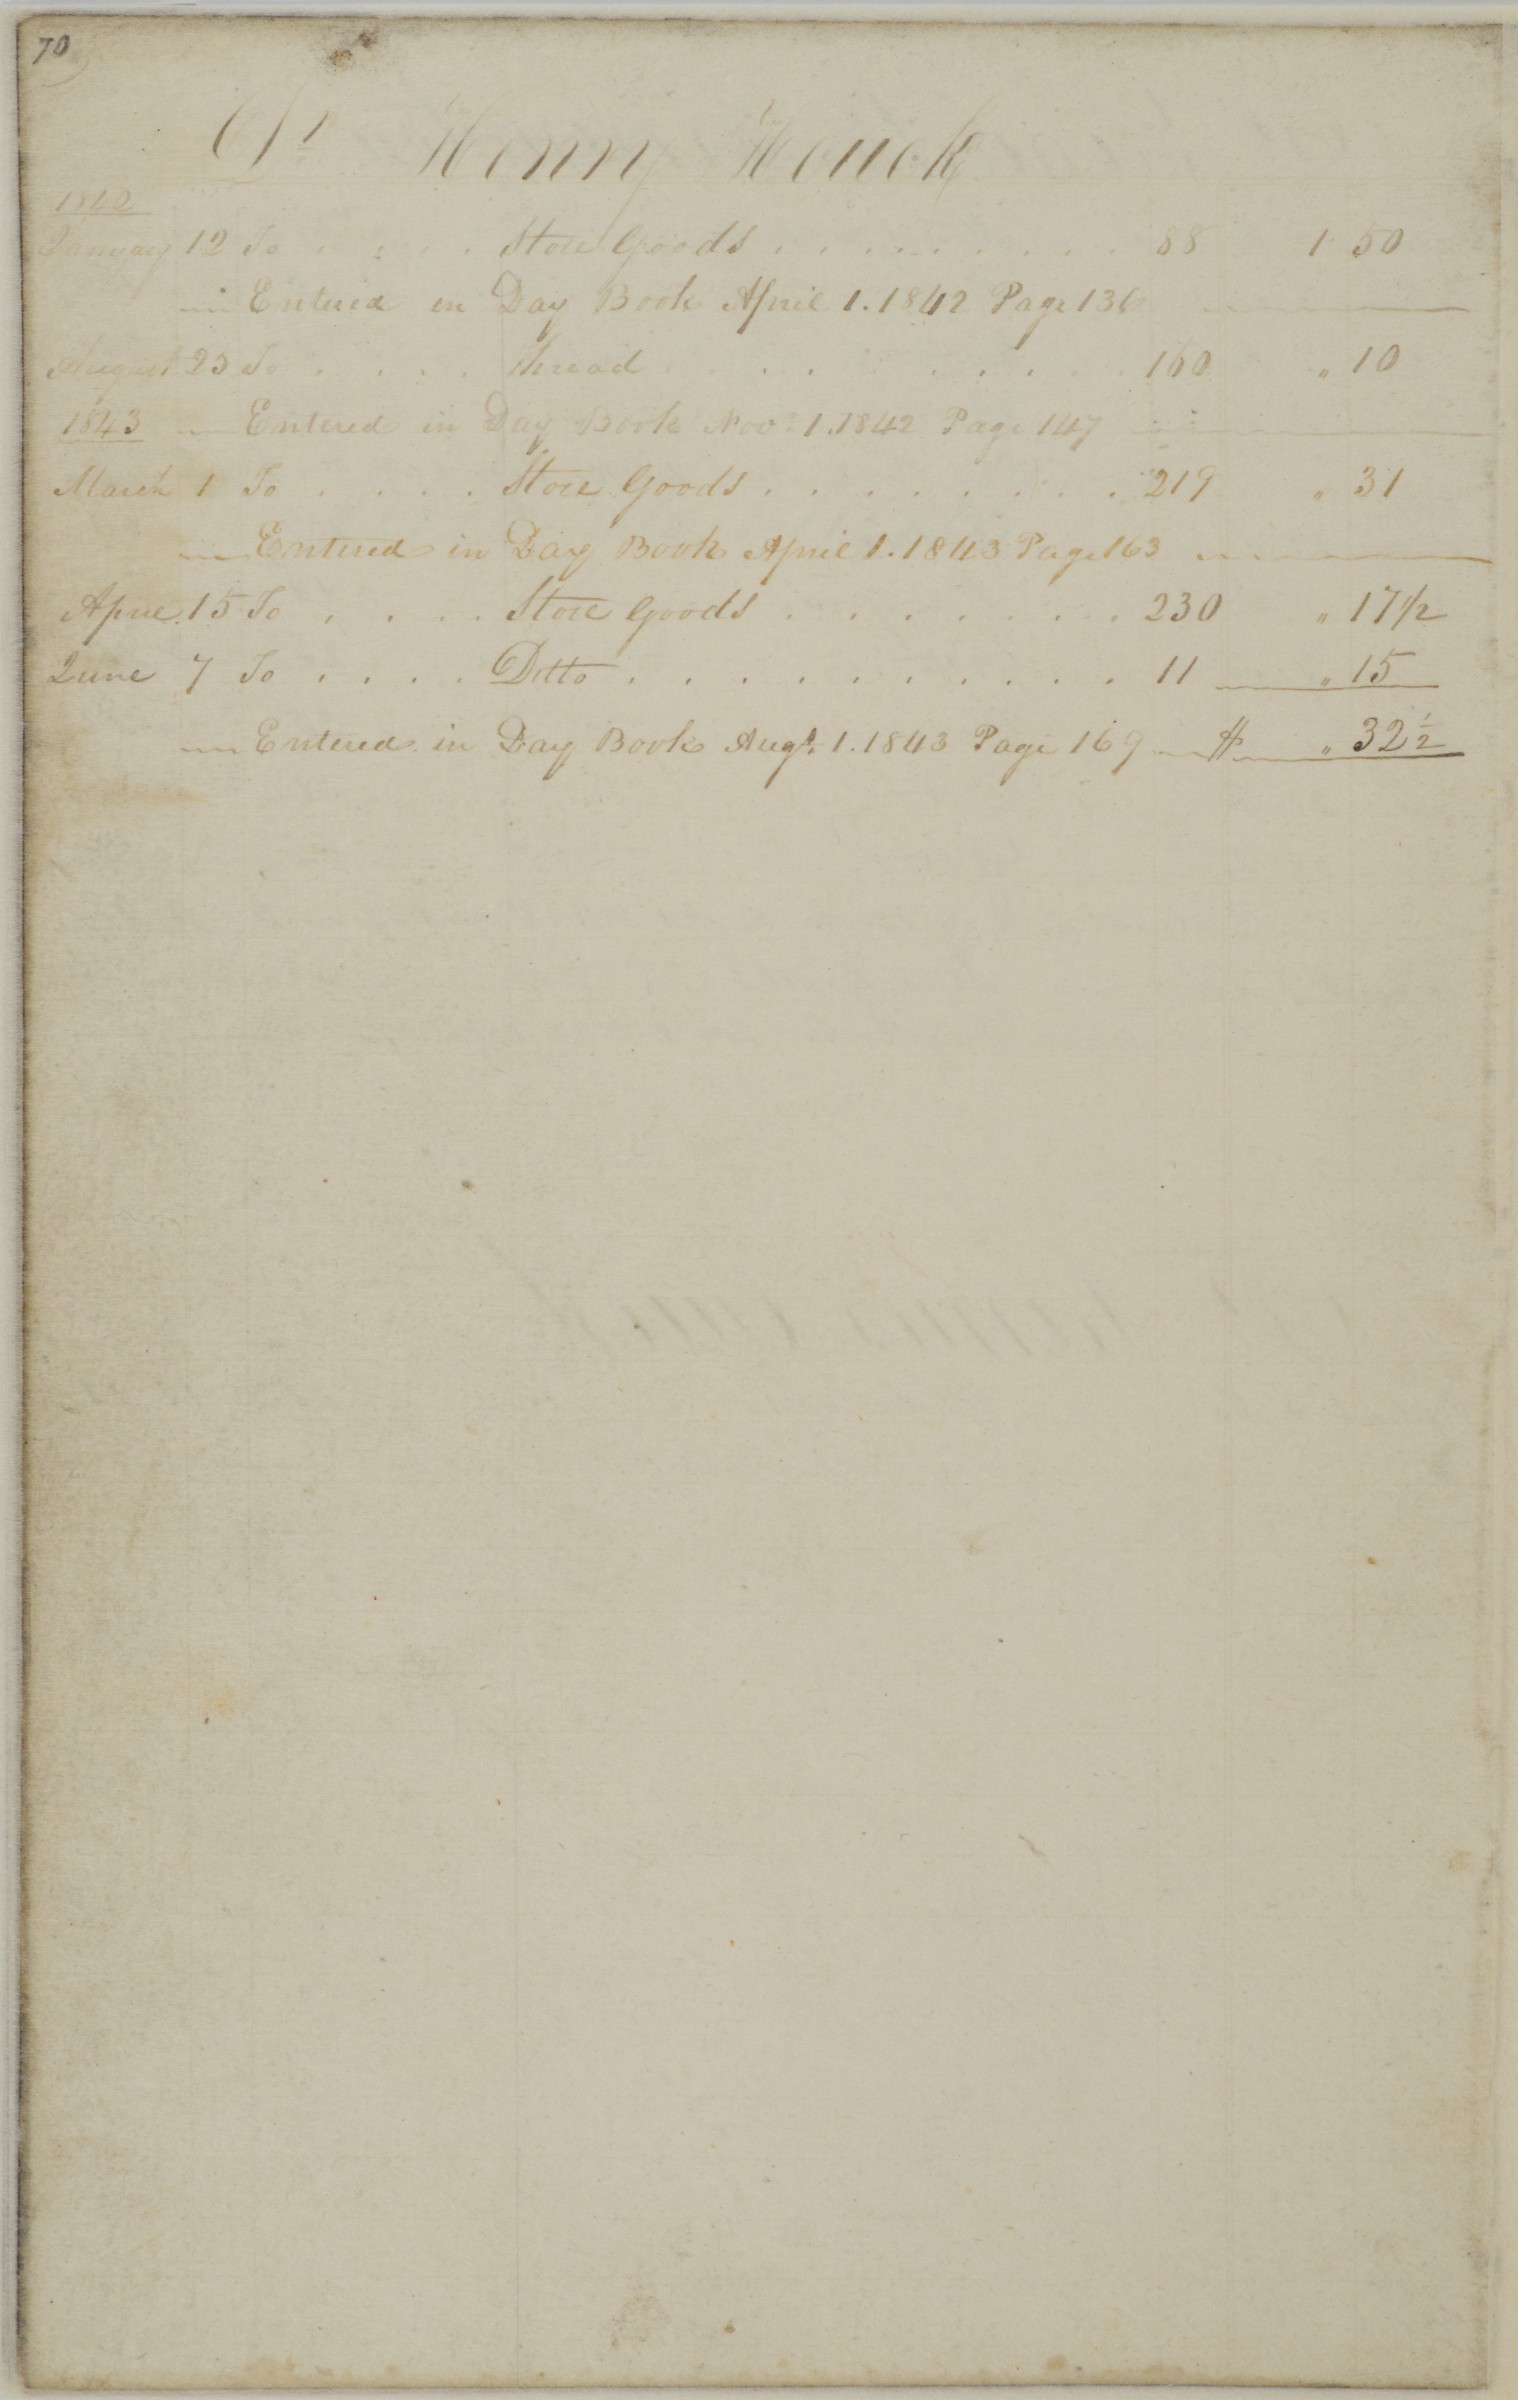 70
Dr Henry Houck
1842
January 12 To . . . . Store Goods . . . . . . . . 88 1 50
Entered in Day Book April 1. 1842 Page 136
August 25 To . . . . Thread . . . . . . . . . 160 " 10
1843 Entered in Day Book Novr 1. 1842 Page 147
March 1 To . . . . Store Goods . . . . . . . . 219 " 31
Entered in Day Book April 1. 1843 Page 163
April 15 To . . . . Store Goods . . . . . . . 230 " 17 1/2
June 7 To . . . . Ditto . . . . . . . . . . 11 " 15
Entered in Day Book Augt. 1. 1843 Page 169 $ " 32 1/2